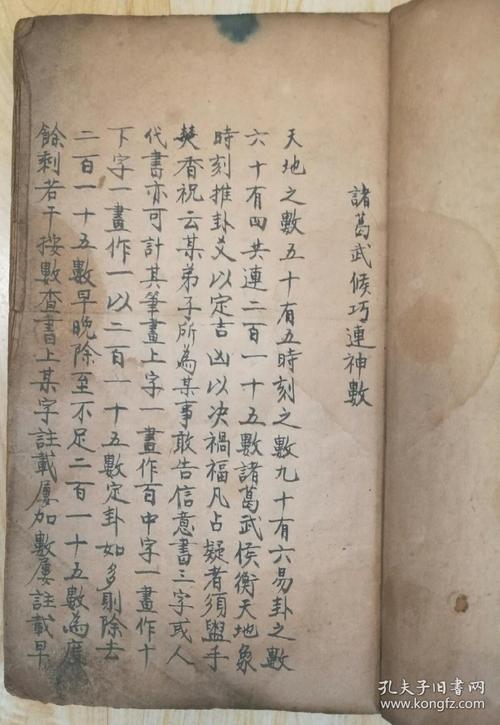 諸葛武候巧連神數
天地之數五十有五時刻之數九十有六易卦之數
六十有四共連二百一十五數諸葛武候衡天地象
時刻推卦爻以定吉凶以决禍福凡占疑者須盥手
焚香祝云某弟子所為某事敢告信意書三字或人
代書亦可計其筆畫上字一畫作百中字一畫作十
下字一畫作一以二百一十五數定卦如多則除去
二百一十五數早晚除至不足二百一十五數為度
餘剩若干按數查書上某字註載屢加數屢註載早
孔夫子旧书网
www.kongfz.com